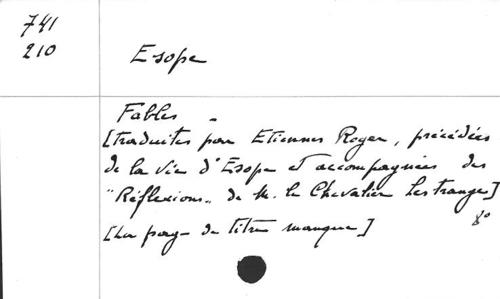 741
210
Esope
Fables -
[traduites par Etienne Roger, précédées
de la vie d'Esope et accompagnées des
"Réflexions" de M. le Chevalier Lestrange]
8°
[La page de titre manque]